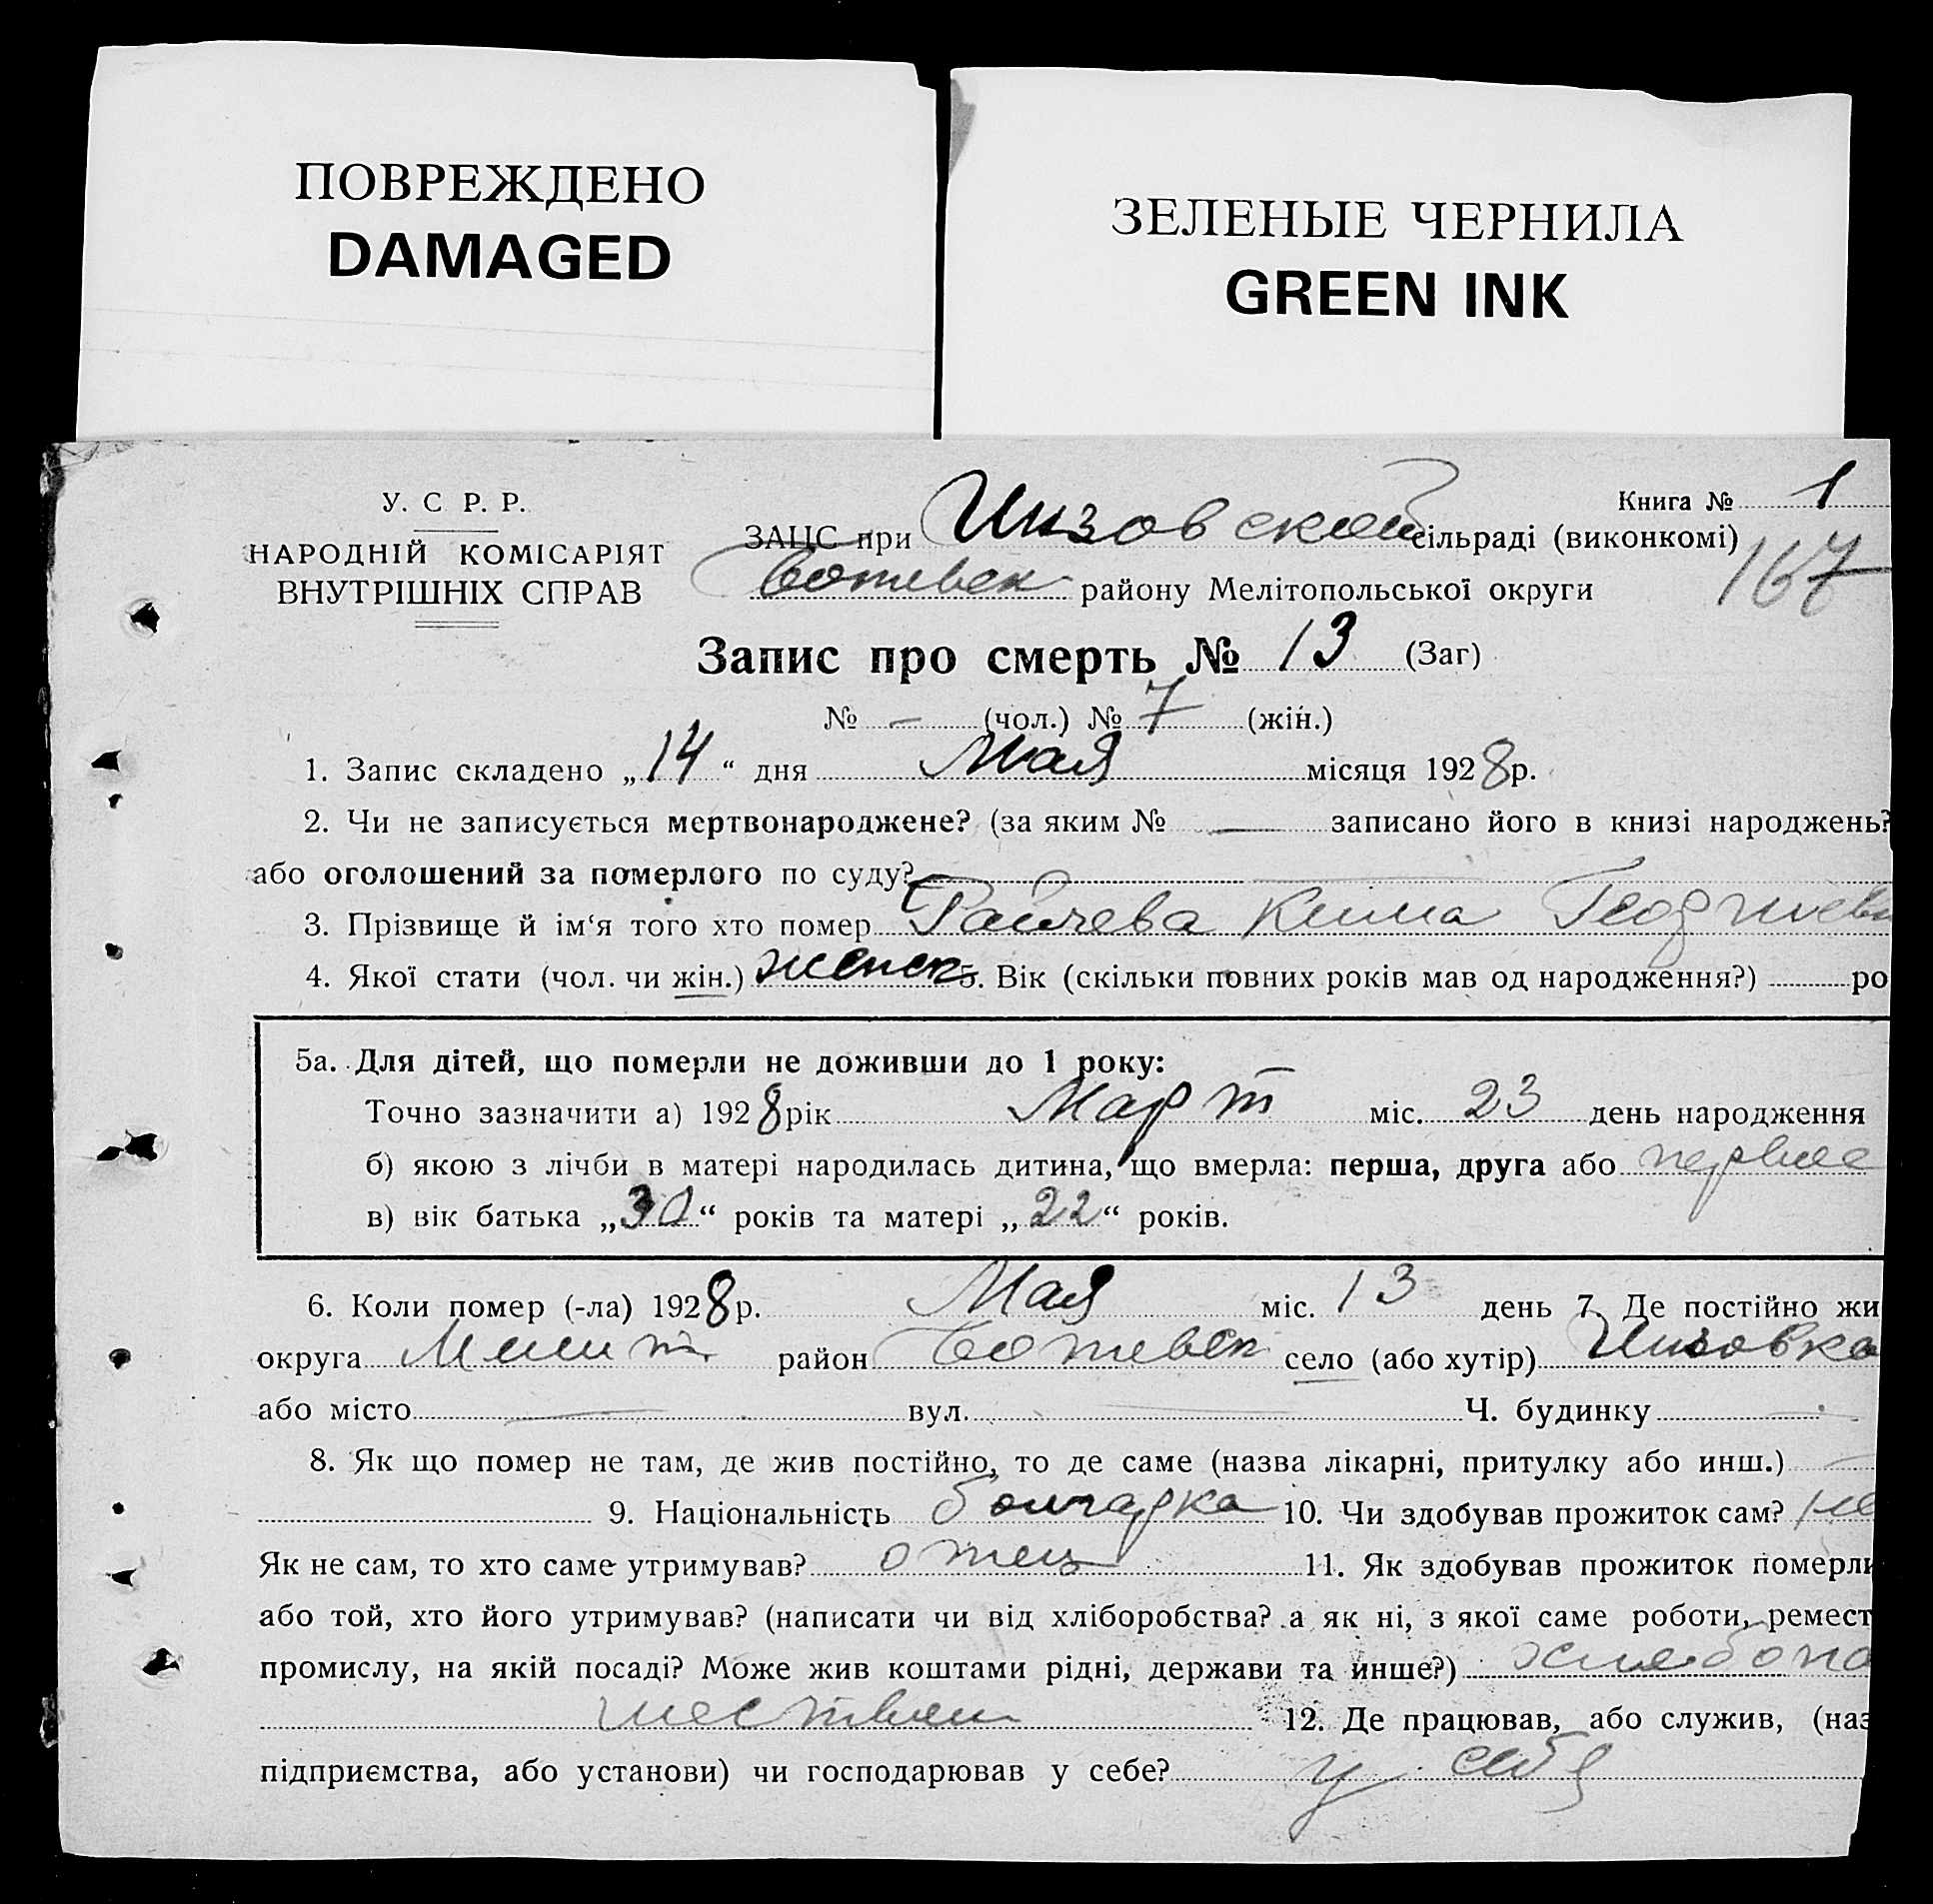 ПОВРЕЖДЕНО
DAMAGED
ЗЕЛЕНЫЕ ЧЕРНИЛА
GREEN INK
У. С Р. Р.
НАРОДНІЙ КОМІСАРІЯТ
ВНУТРІШНІХ СПРАВ
Книга № 1
ЗАЦС при Инзовской сільраді (виконкомі)
167
Ботевск району Мелітопольської округи
Запис про смерть № 13 (Заг)
№ – (чол.) № 7 (жін.)
1. Запис складено „14“ дня Мая місяця 1928 р.
2. Чи не записується мертвонароджене? (за яким № — записано його в книзі народжень?
або оголошений за померлого по суду?
3. Прізвище й ім‘я того хто помер Райчева Георгиев
4. Якої стати (чол. чи жін.) женск 5. Вік (скільки повних років мав од народження?) ро
5а. Для дітей, що померли не доживши до 1 року:
Точно зазначити а) 1928 рік Март міс. 23 день народження
б) якою з лічби в матері народилась дитина, що вмерла: перша, друга або
в) вік батька „30“ років та матері „22“ років.
6. Коли помер (-ла) 1928 р. Мая міс. 13 день 7. Де постійно жи
округа Мелит. район Ботевск село (або хутір) Инзовка
або місто — вул. — Ч. будинку —
8. Як що помер не там, де жив постійно, то де саме (назва лікарні, притулку або инш.) —
9. Національність болгарка 10. Чи здобував прожиток сам? не
Як не сам, то хто саме утримував? отец 11. Як здобував прожиток померли
або той, хто його утримував? (написати чи від хліборобства? а як ні, з якої саме роботи, ремест
промислу, на якій посаді? Може жив коштами рідні, держави та инше?) хлебопа
шеством 12. Де працював, або служив, (наз
підприємства, або установи) чи господарював у себе? у себя